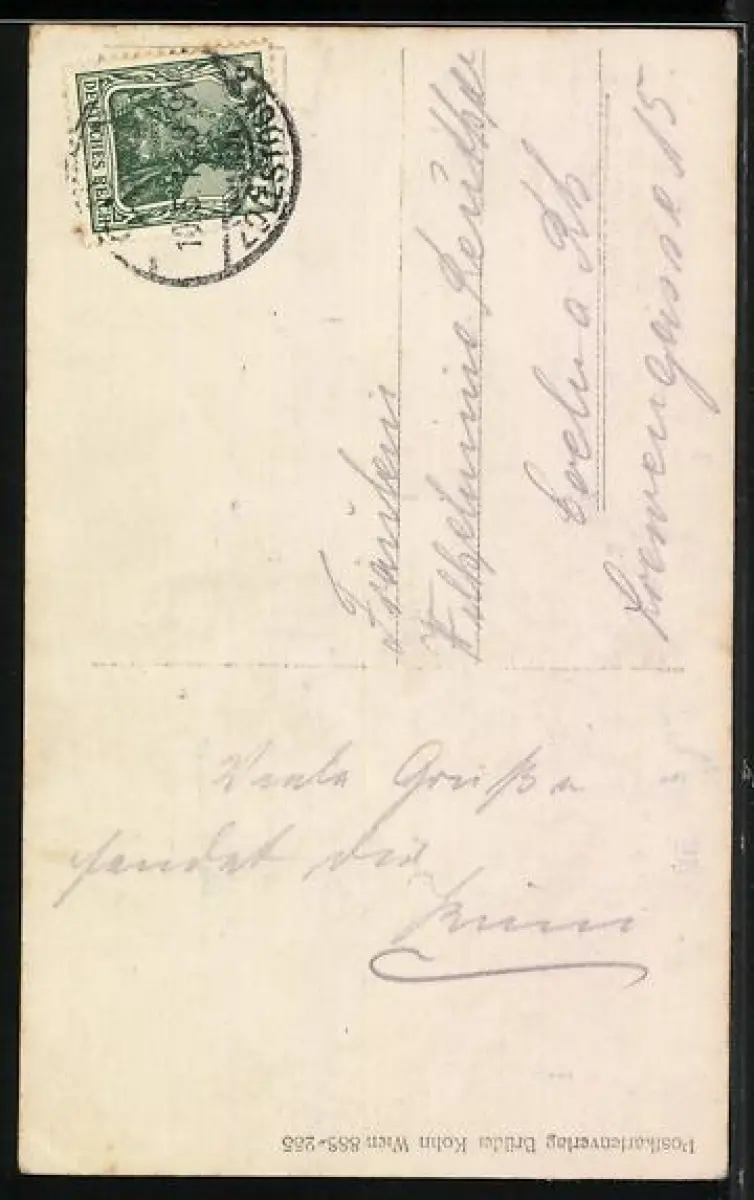 DEUTSCHES REICH
Fräulein
Wilhelmine Reuther
Coeln a Rh
Loewengasse 15
Viele Grüße
sendet dir
Postkartenverlag Brüder Kohn Wien 883-255